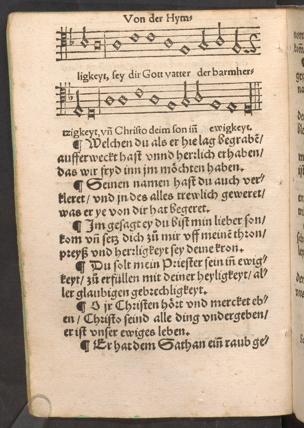 Von der Hym-
ligkeyt, sey dir Gott vatter der barmher-
tzigkeyt, vñ Christo deim son iñ ewigkeyt.
¶ Welchen du als er hie lag begrabẽ/
aufferweckt hast vnnd herrlich erhaben/
das wir fryd inn jm möchten haben.
¶ Seinen namen hast du auch ver-
kleret/ vnd jn des alles trewlich geweret/
was er ye von dir hat begeret.
¶ Jm gesagt ey du bist min lieber son/
kom vñ setz dich zů mir vff meinẽ thron/
preyß vnd herrligkeyt sey deine kron.
¶ Du solt mein Priester sein iñ ewig-
keyt/ zů erfüllen mit deiner heyligkeyt/ al-
ler glaubigen gebrechligkeyt.
¶ O jr Christen hört vnd mercket eb-
en/ Christo seind alle ding vndergeben/
er ist vnser ewiges leben.
¶ Er hat dem Sathan eiñ raub ge-